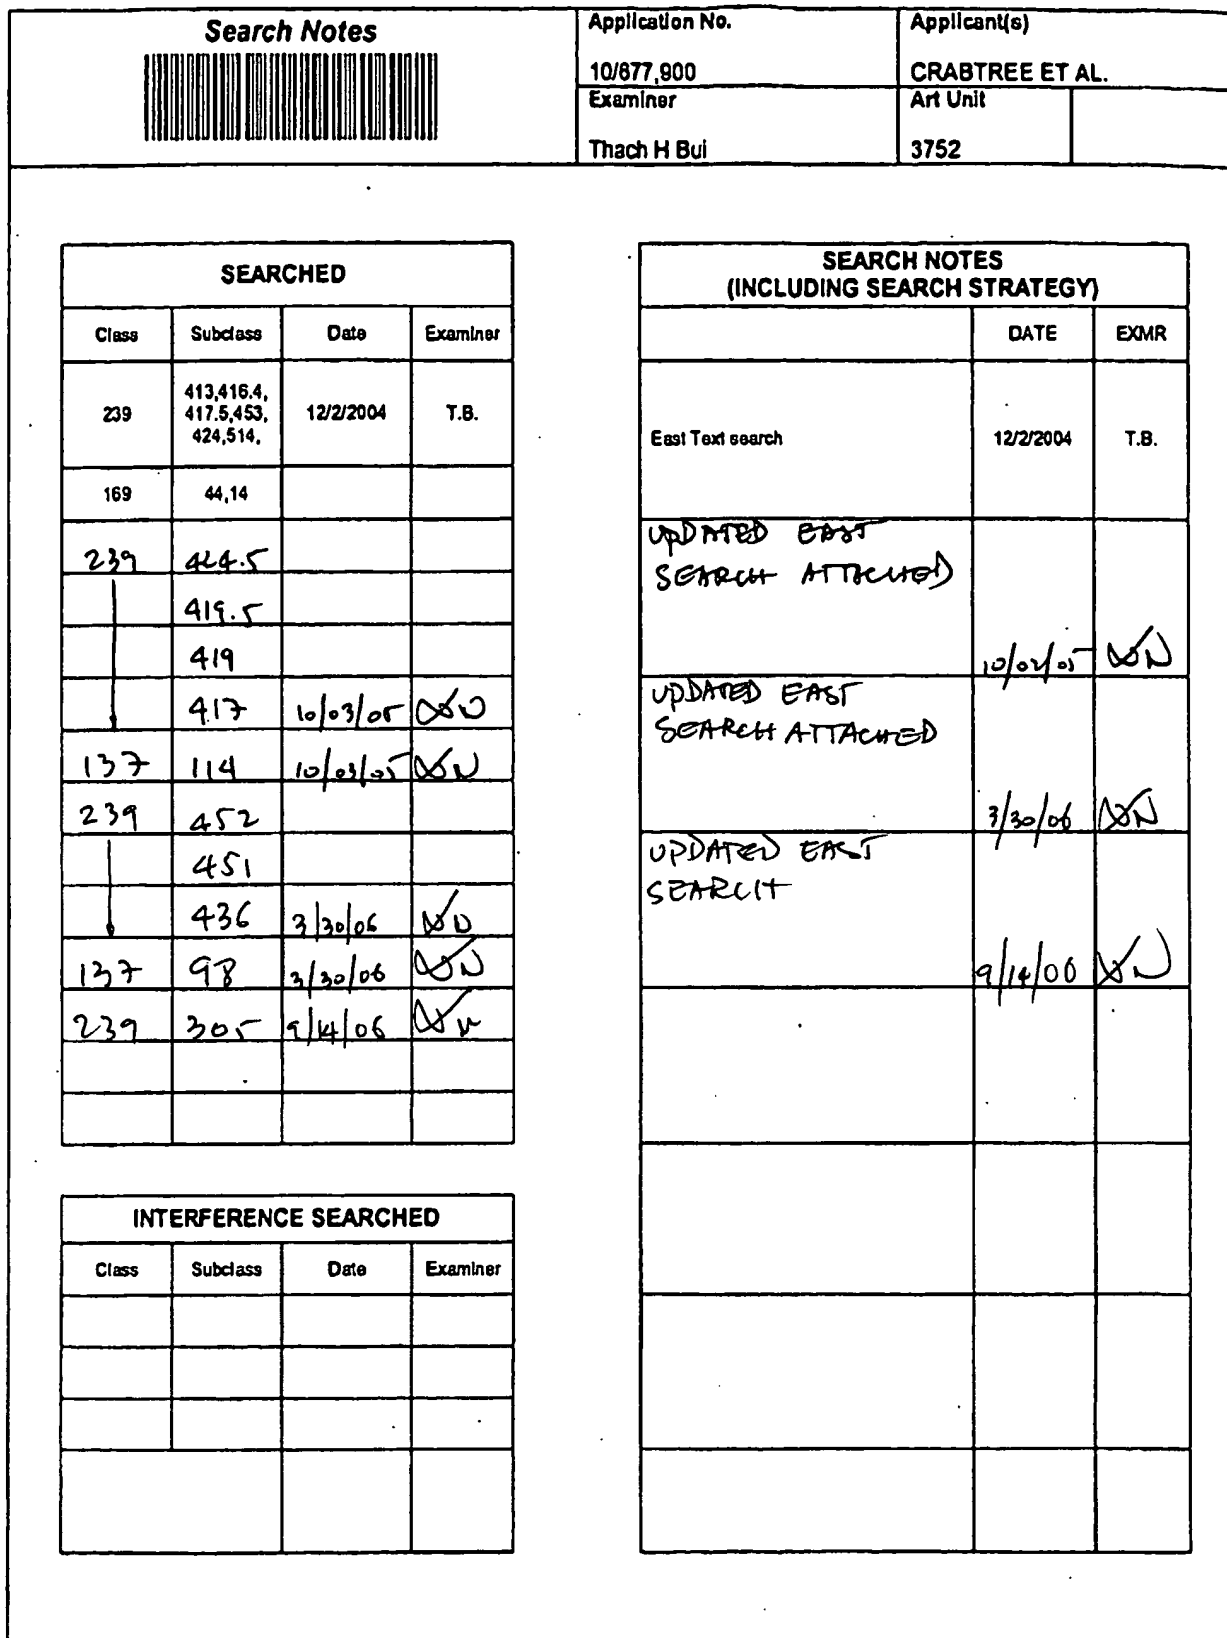 Search Notes
Application No.
10/677,900
Applicant(s)
CRABTREE ET AL.
Examiner
Thach H Bui
Art Unit
3752
SEARCHED
Class Subclass Date Examiner
239 413,416.4, 417.5,453, 424,514, 12/2/2004 T.B.
169 44,14
239 424.5
419.5
419
417 10/03/05
137 114 10/03/05
239 452
451
436 3/30/06
137 98 3/30/06
239 305 9/14/06
INTERFERENCE SEARCHED
Class Subclass Date Examiner
SEARCH NOTES
(INCLUDING SEARCH STRATEGY)
DATE EXMR
East Text search 12/2/2004 T.B.
UPDATED EAST
SEARCH ATTACHED
10/02/05
UPDATED EAST
SEARCH ATTACHED
3/30/06
UPDATED EAST
SEARCH
9/14/06